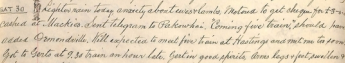 SAT 30 Higher rain today anxiety about ewes & lambs. Motored to get cheque for £3-
called at Mackies. Sent telegram to Pakowhai. "Coming five train," should have
added Ormondville. Will expected to meet five train at Hastings and met me tomorrow
Got to Gert's at 9.30 an hour late. Gert in good spirits, tame legs & feet, swollen &